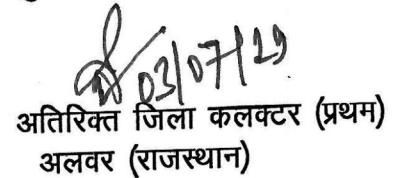 03/07/29
अतिरिक्त जिला कलक्टर (प्रथम)
अलवर (राजस्थान)